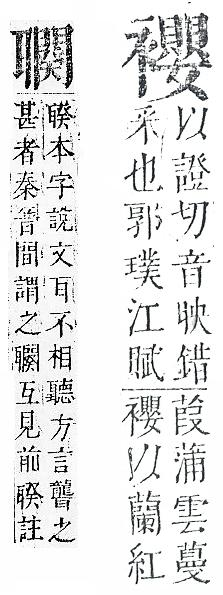 以證切音映錯
采也郭璞江賦
葭蒲雲蔓
以蘭紅
聧本字說文耳不相聽方言聾之
甚者秦晉間謂之互見前聧註